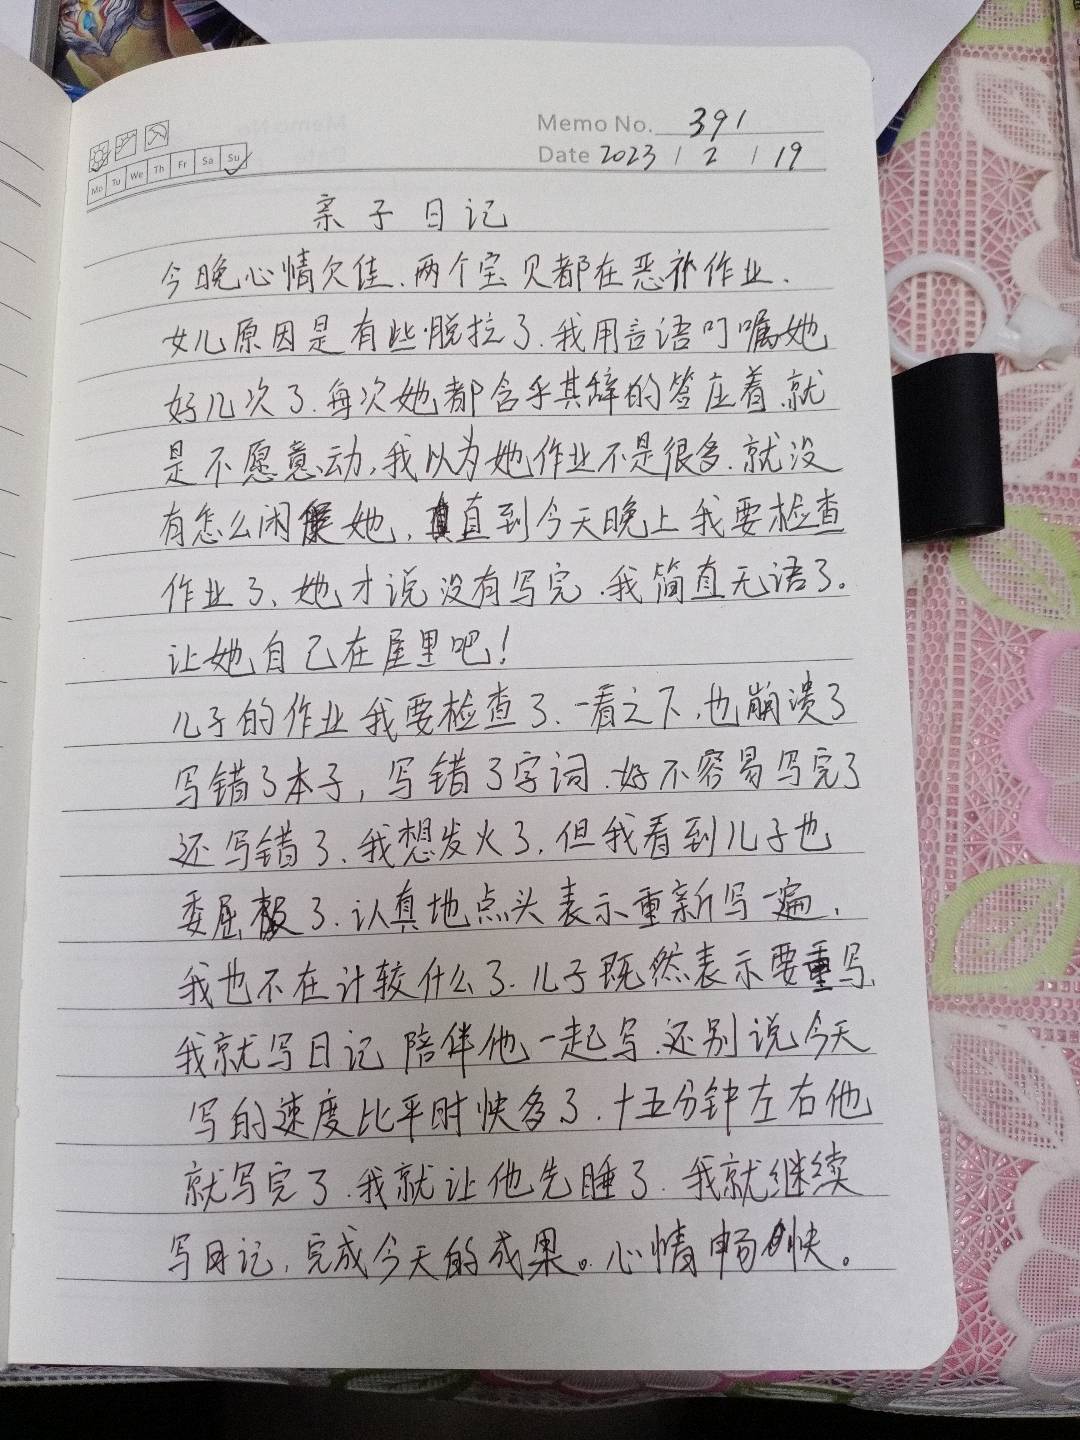 Memo No. 391
Mo Tu We Th Fr Sa Su
Date 2023 / 2 / 19
亲子日记
今晚心情欠佳、两个宝贝都在恶补作业、
女儿原因是有些脱拉了、我用言语叮嘱她
好几次了、每次她都含乎其辞的答应着、就
是不愿意动,我以为她作业不是很多、就没
有怎么闲她,直到今天晚上我要检查
作业了、她才说没有写完、我简直无语了。
让她自己在屋里吧!
儿子的作业我要检查了、一看之下,也崩溃了
写错了本子,写错了字词、好不容易写完了
还写错了、我想发火了,但我看到儿子也
委屈极了、认真地点头表示重新写一遍、
我也不在计较什么了、儿子既然表示要重写、
我就写日记陪伴他一起写、还别说今天
写的速度比平时快多了、十五分钟左右他
就写完了、我就让他先睡了、我就继续
写日记,完成今天的成果。心情畅快。